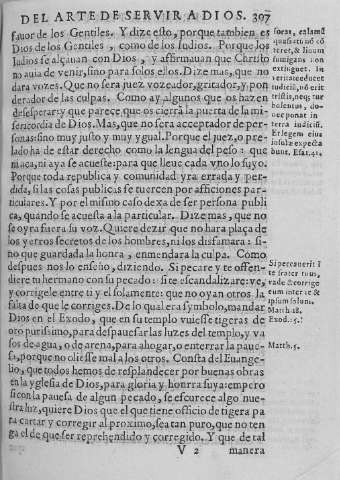 DEL ARTE DE SERVIR A DIOS. 307
fauor de los Gentiles. Y dize esto, porque tambien es
Dios de los Gentiles, como de los Iudios. Porque los
Iudios se alçauan con Dios, y affirmauan que Christo
no auia de venir, sino para solos ellos. Dize mas, que no
dara vozes. Que no sera juez vozeador, gritador, y pon
derador de las culpas. Como ay algunos que os hazen
desesperar: y que parece que os cierra la puerta de la mi-
sericordia de Dios. Mas, que no sera acceptador de per-
sonas: sino muy justo y muy ygual. Porque el juez, o pre-
lado ha de estar derecho como la lengua del peso: que
maca, ni aya se acueste: para que lleue cada vno lo suyo.
Porque toda republica y comunidad yra errada y per-
dida, si las cosas publicas se tuercen por afficiones par-
ticulares. Y por el mismo caso dexa de ser persona publi
ca, quando se acuesta a la particular. Dize mas, que no
se oyra fuera su voz. Quiere dezir que no hara plaça de
los yerros secretos de los hombres, ni los disfamara: si-
no que guardada la honra, enmendara la culpa. Como
despues nos lo enseño, diziendo. Si pecare y te offen-
diere tu hermano con su pecado: si te escandalizare: ve,
y corrigele entre ti y el solamente: que no oyan otros la
falta de que le corriges. De lo qual era symbolo, mandar
Dios en el Exodo, que en su templo vuiesse tigeras de
oro purissimo, para despauesar las luzes del templo, y va
sos de agua, o de arena, para ahogar, o enterrar la paue-
sa, porque no oliesse mal a los otros. Consta del Euange-
lio, que todos hemos de resplandecer por buenas obras
en la yglesia de Dios, para gloria y honrra suya: empero
si con la pauesa de algun pecado, se escurece algo nue-
stra luz, quiere Dios que el que tiene officio de tigera pa
ra cartar y corregir al proximo, sea tan puro, que no ten
ga el de que ser reprehendido y corregido. Y que de tal
V 2 manera
foras, calamũ
quassatũ nõ cõ
teret, & linum
fumigans non
extinguet. In
veritate educet
iudiciũ, nõ erit
tristis, neq; tur
bulentus, do-
nec ponat in
terra iudiciũ,
Et legem eius
insulæ expecta
bunt. Esai. 42.
Si peccauerit ĩ
te frater tuus,
vade & corrige
eum inter te &
ipsum solum.
Matth. 18.
Exod. 25.
Matth. 5.